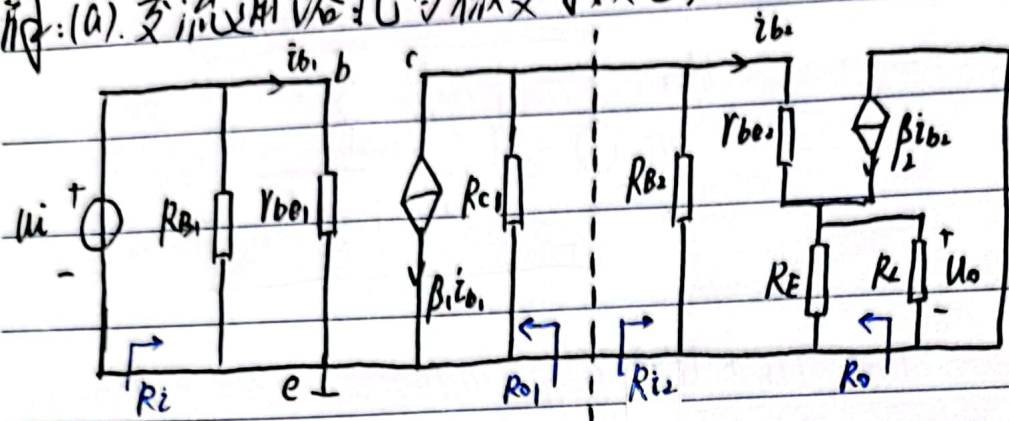 解:(a).交流
ib₁ b c ib₂
+ ui - RB₁ rbe₁ β₁ib₁ RC₁ RB₂ rbe₂ β₂ib₂
RE RL + uo -
Ri e Ro₁ Ri₂ Ro